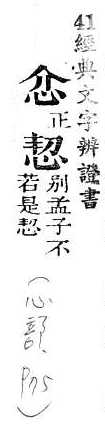 41經典文字辨證書
正
恝别孟子不
若是恝
(心部, P75)